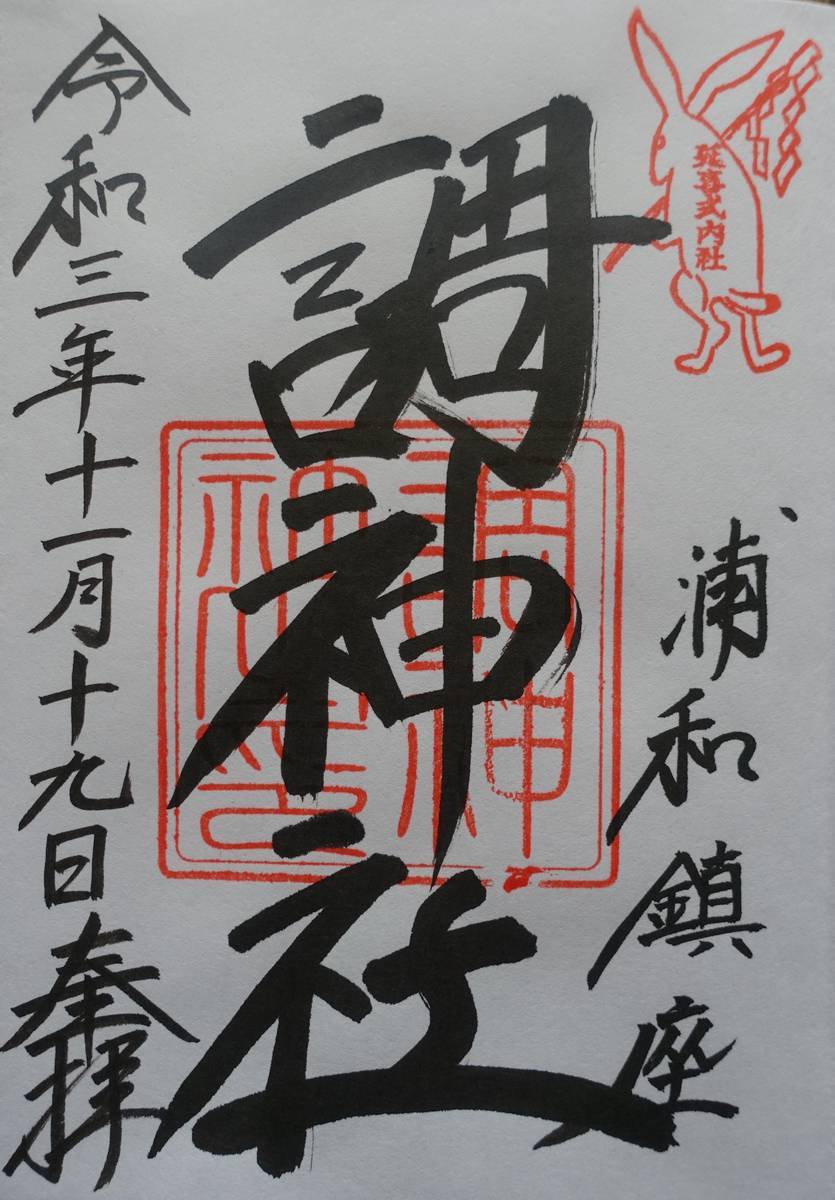 延喜式内社
浦和鎮座
調神社
調神社印
令和三年十一月十九日奉拝